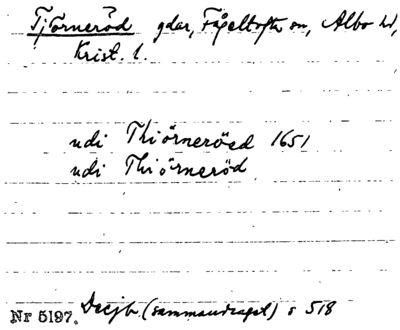 Tjörneröd gdar, Fågeltofta sn, Albo hd,
Krist. l.
udi Thiörneröed 1651
udi Thiörneröd
Nr 5197. Decjb (sammandraget) s 518